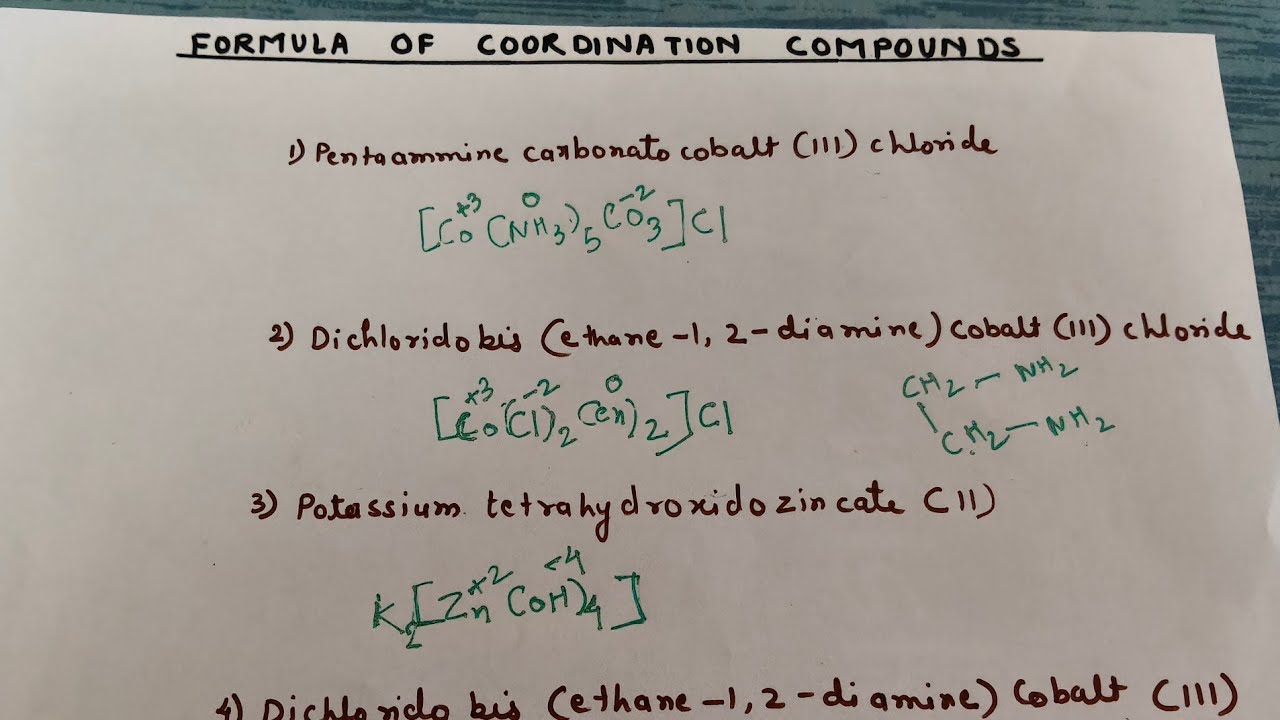 FORMULA OF COORDINATION COMPOUNDS
1) Pentaammine carbonato cobalt (III) chloride
[Co⁺³(NH₃)⁰₅CO₃⁻²]Cl
2) Dichlorido bis (ethane-1, 2-diamine) cobalt (III) chloride
[Co⁺³(Cl)⁻²₂(en)⁰₂]Cl
CH₂ - NH₂
CH₂ - NH₂
3) Potassium tetrahydroxidozincate (II)
K₂[Zn⁺²(OH)₄⁻⁴]
4) Dichlorido bis (ethane-1, 2-diamine) Cobalt (III)